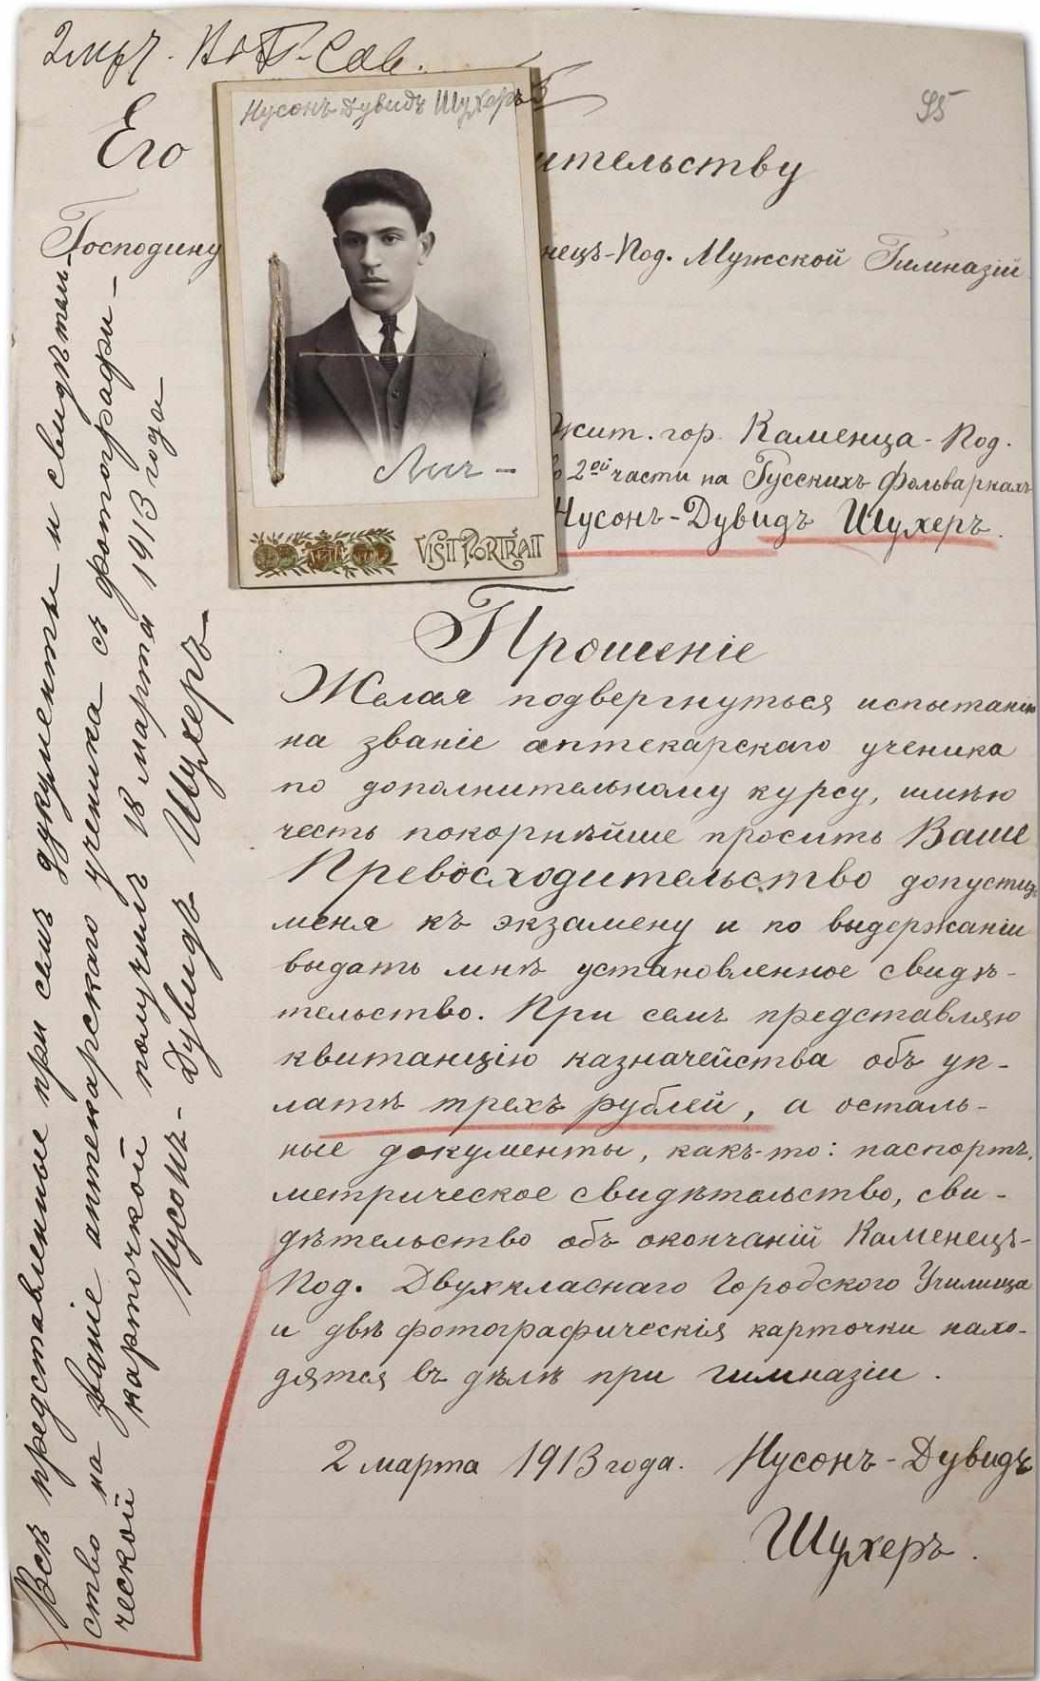 2 мрт.
55
Его
ительству
Господину
нецъ-Под. Мужской Гимназіи
Нусонъ Дувидъ Шухеръ
VISIT PORTRAIT
жит. гор. Каменца-Под.
2ой части на Русскихъ Фольваркахъ
Нусонъ-Дувидъ Шухеръ.
Прошеніе
Желая подвергнуться испытанію
на званіе аптекарскаго ученика
по дополнительному курсу, имѣю
честь покорнѣйше просить Ваше
Превосходительство допустить
меня къ экзамену и по выдержаніи
выдать мнѣ установленное свидѣ-
тельство. При семъ представляю
квитанцію казначейства объ уп-
латѣ трехъ рублей, а осталь-
ные документы, какъ-то: паспортъ,
метрическое свидѣтельство, сви-
дѣтельство объ окончаній Каменецъ-
Под. Двухкласнаго Городского Училища
и двѣ фотографическія карточки нахо-
дятся въ дѣлѣ при гимназіи.
2 марта 1913 года. Нусонъ-Дувидъ
Шухеръ.
Всѣ представленные при семъ документы и свидѣтель-
ство на званіе аптекарского ученика съ фотографи-
ческой карточкой получилъ 18 марта 1913 года
Нусонъ-Дувидъ Шухеръ